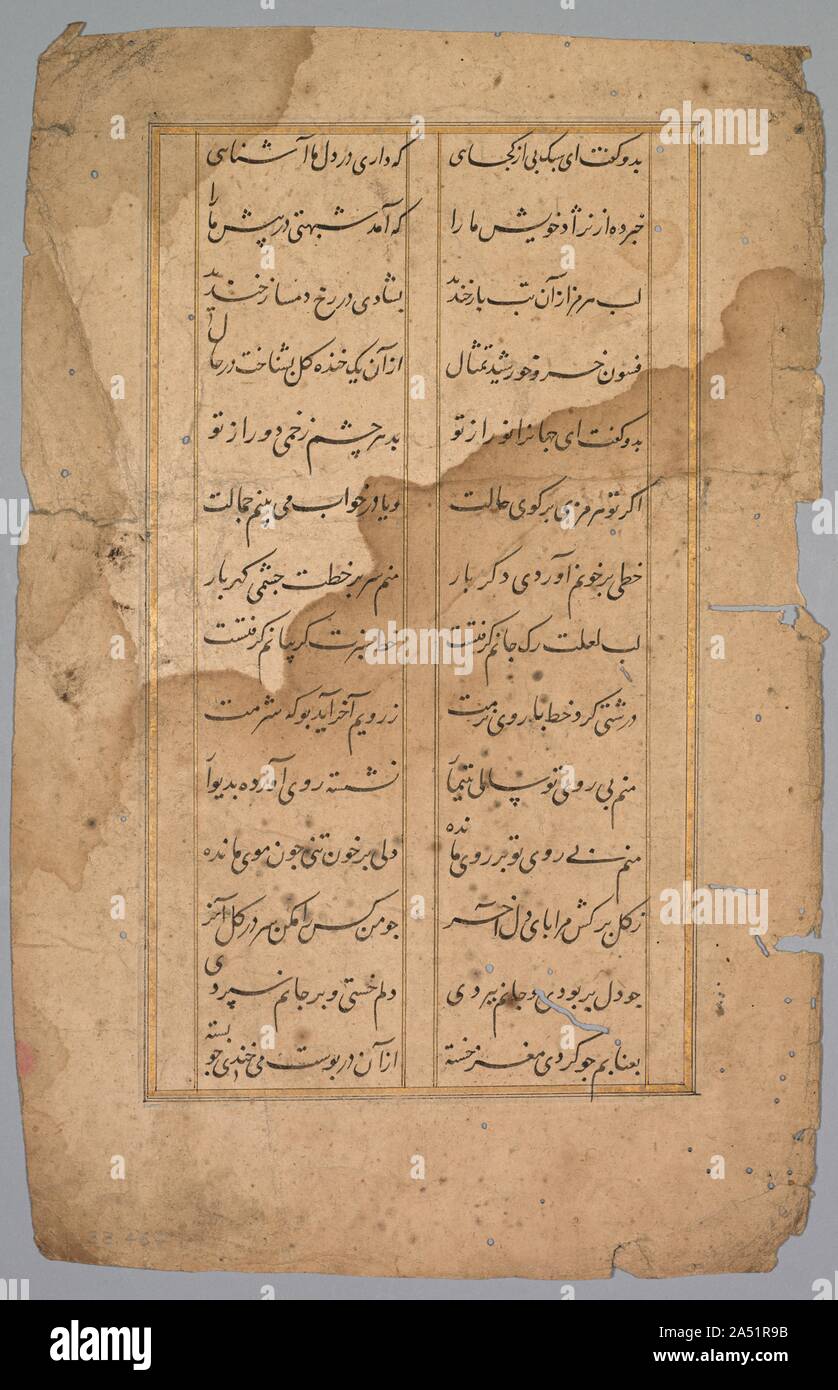 بدو گفت ای سبک پی از کجایی که داری در دل ما آشنایی
خبر ده از نژاد خویش ما را که آمد شبهتی در پیش ما را
لب هرمز از آن بت باز خندید بشادی در رخ دمساز خندید
فسون خسرو خورشید تمثال از آن یک خنده کل بشناخت در حال
بدو گفت ای جهانرا نور از تو بد هر چشم زخمی دور از تو
اکر تو هرمزی بر کوی حالت و یا در خواب می بینم جمالت
خطی بر خونم آوردی دکر بار منم سر بر خطت چشمی کهر بار
لب لعلت رک جانم کرفتست خط سبزت کریبانم کرفتست
درشتی کرد خط با روی نرمت ز رویم آخر آید بو که شرمت
منم بی روی تو سالی تیمار نشسته روی آورده بدیوار
منم بی روی تو بر روی مانده دلی بر خون تنی چون موی مانده
ز کل برکش مرا بای دل آخر جو من کس را مکن سر در کل آخر
جو دل بربودی و جانم ببردی دلم خستی و بر جانم سپردی
بعنابم جو کردی مغز خسته از آن در بوست می خندی جو بسته
alamy
Image ID: 2A51R9B
www.alamy.com